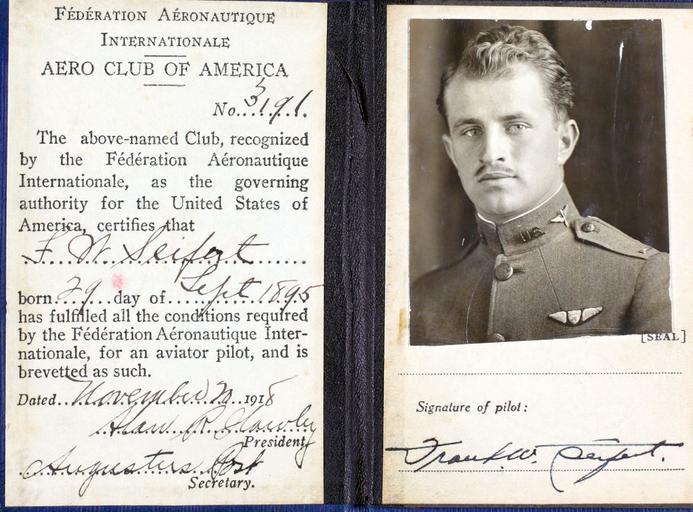 FÉDÉRATION AÉRONAUTIQUE
INTERNATIONALE
AERO CLUB OF AMERICA
No. 3191.
The above-named Club, recognized
by the Fédération Aéronautique
Internationale, as the governing
authority for the United States of
America, certifies that
F. W. Seifert
born 29 day of Sept. 1895
has fulfilled all the conditions required
by the Fédération Aéronautique Inter-
nationale, for an aviator pilot, and is
brevetted as such.
Dated November 20 1918
Alan R. Hawley
President
Augustus Post
Secretary.
U.S.
[SEAL]
Signature of pilot:
Frank W. Seifert.